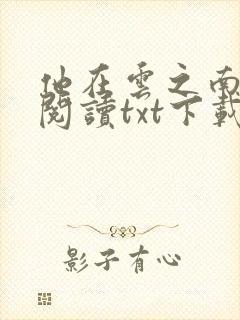 他在雲之南
閱讀txt下載
影子有心